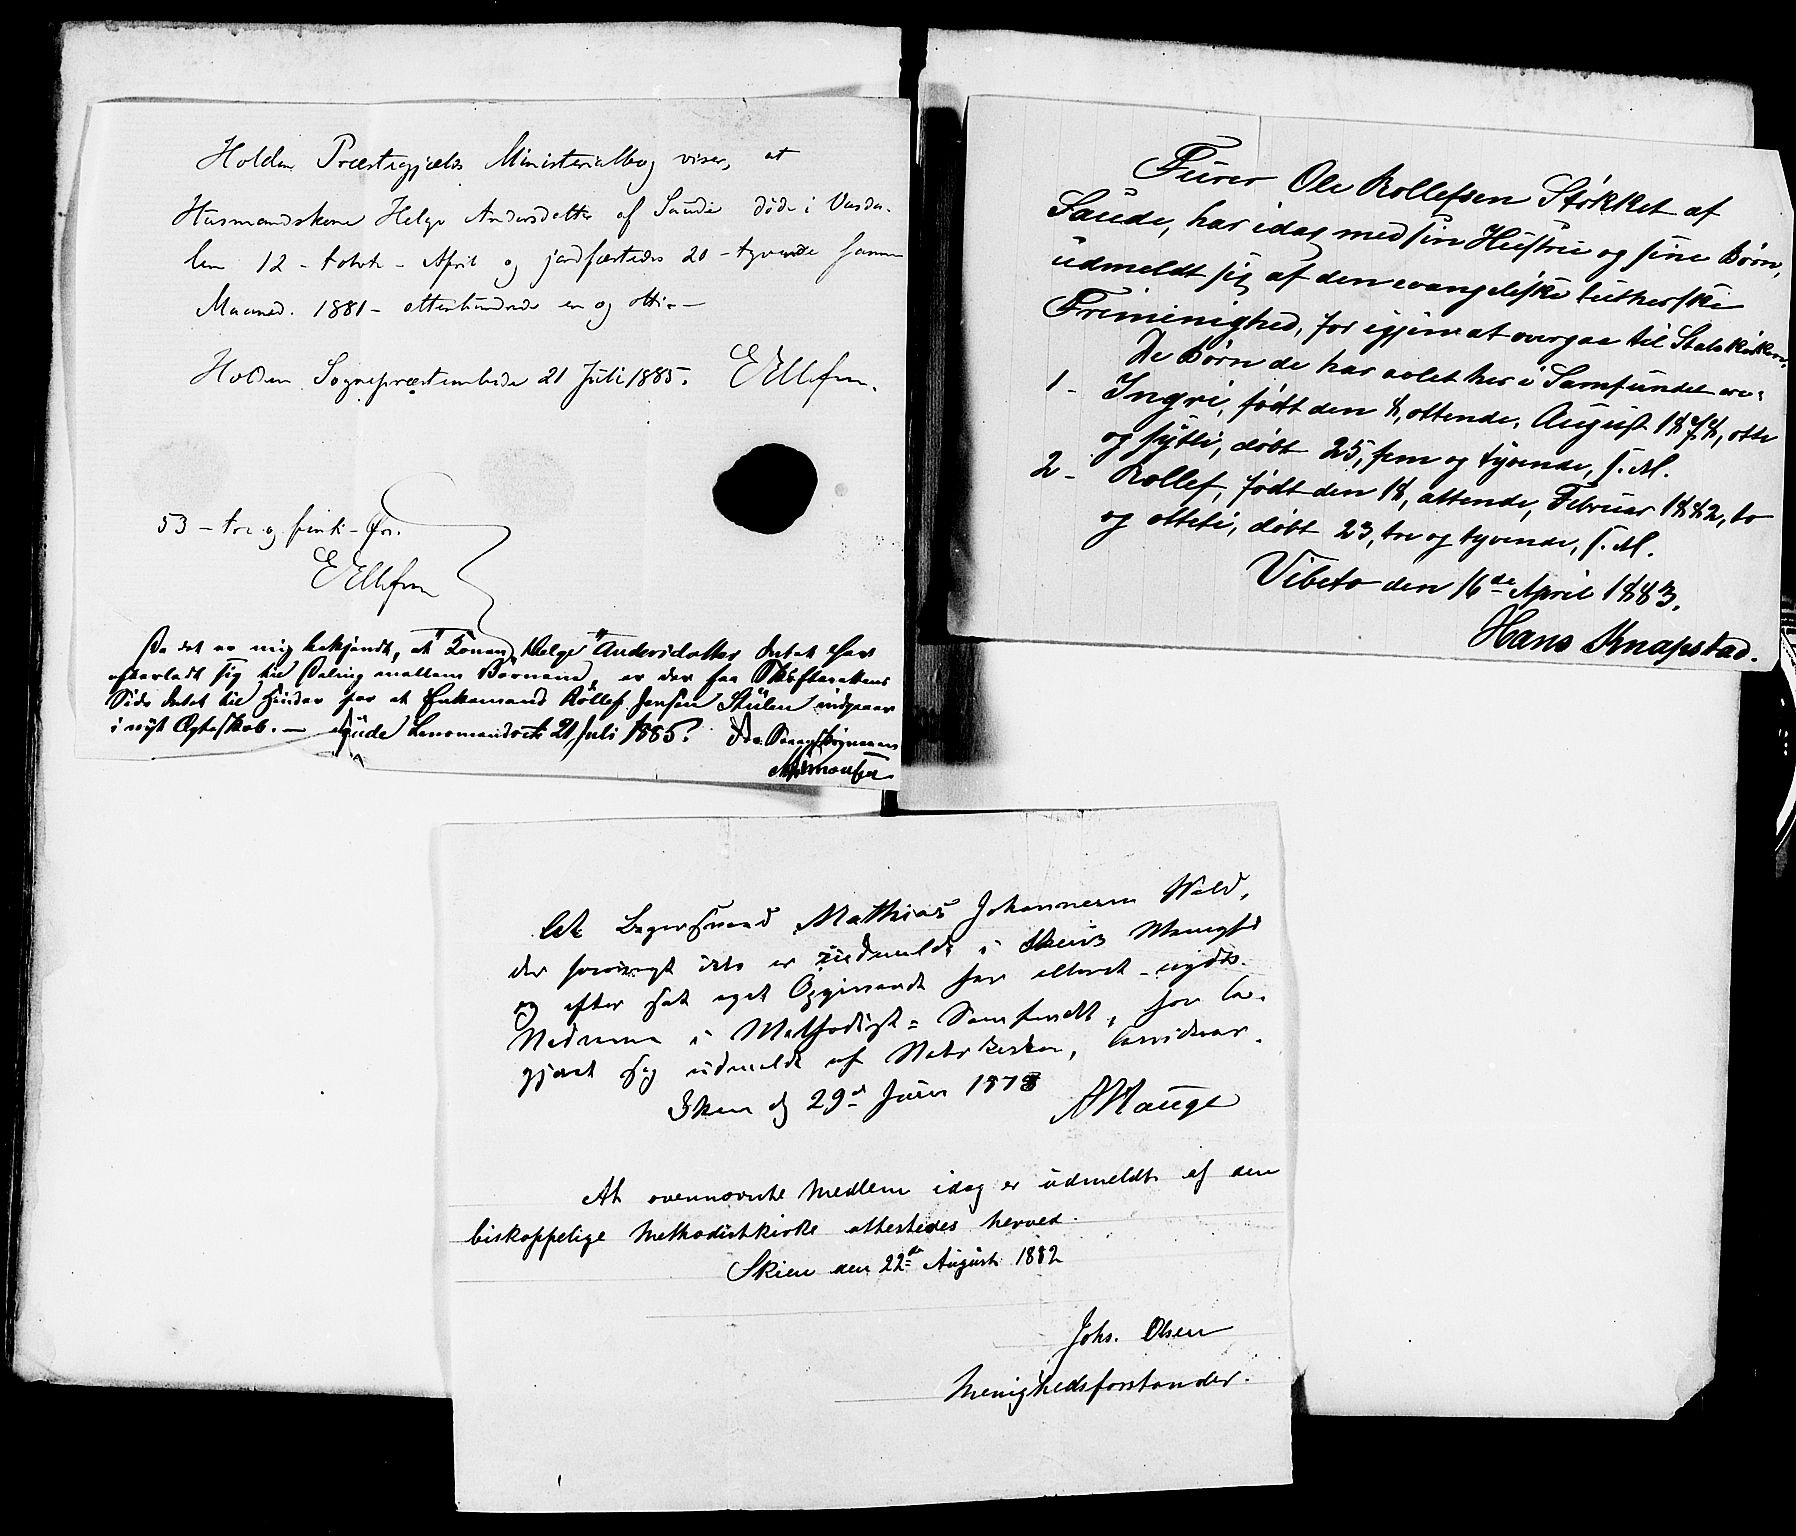 Holden Præstegjælds Ministerialbog viser, at
Husmandskone Helge Andersdatter af Saude døde i Vasda-
len 12 - tolvte - April og jordfæstedes 20 - tyvende samme
Maaned. 1881 - attenhundrede en og otti -
Holden Sognepræstembede 21 Juli 1885. E Ellefsen.
53 - tre og femti - Øre.
E Ellefsen
Da det er mig bekjendt, at Konen, Helge Andersdatter Intet har
efterladt sig til Deling mellem Børnene, er der fra Skifterettens
Side Intet til Hinder for at Enkemand Rollef Jensen Stulen indgaaer
i nyt Ægteskab. - Saude Lensmandsct 21 Juli 1885.
Furer Ole Rollefsen Støkket af
Saude, har idag med sin Hustru og sine Børn,
udmeldt sig af den evangeliske lutherske
Frimenighed, for igjen at overgaa til Statskirken.
De Børn de har avlet her i Samfundet ere:
1 - Ingri, født den 8, ottende, August 1878, otte
og sytti, døbt 25, fem og tyvende, s. M.
2 - Rollef, født den 18, attende, Februar 1882, to
og otteti, døbt 23, tre og tyvende, s. M.
Vibeto den 16de April 1883.
Hans Knapstad.
At Bagersvend Mathias Johannesen Wold,
der forøvrigt ikke er indmeldt i Skiens Menighed
og efter sit eget Opgivende har allerede
i Methodist= Samfundet, har
gjort sig udmeldt af Statskirken, bevidner.
Skien d 29d Juni 1878 A Hauge
At ovennævnte Medlem idag er udmeldt af den
biskoppelige Methodistkirke attesteres herved.
Skien den 22de August 1882
Johs. Olsen
Menighedsforstander.